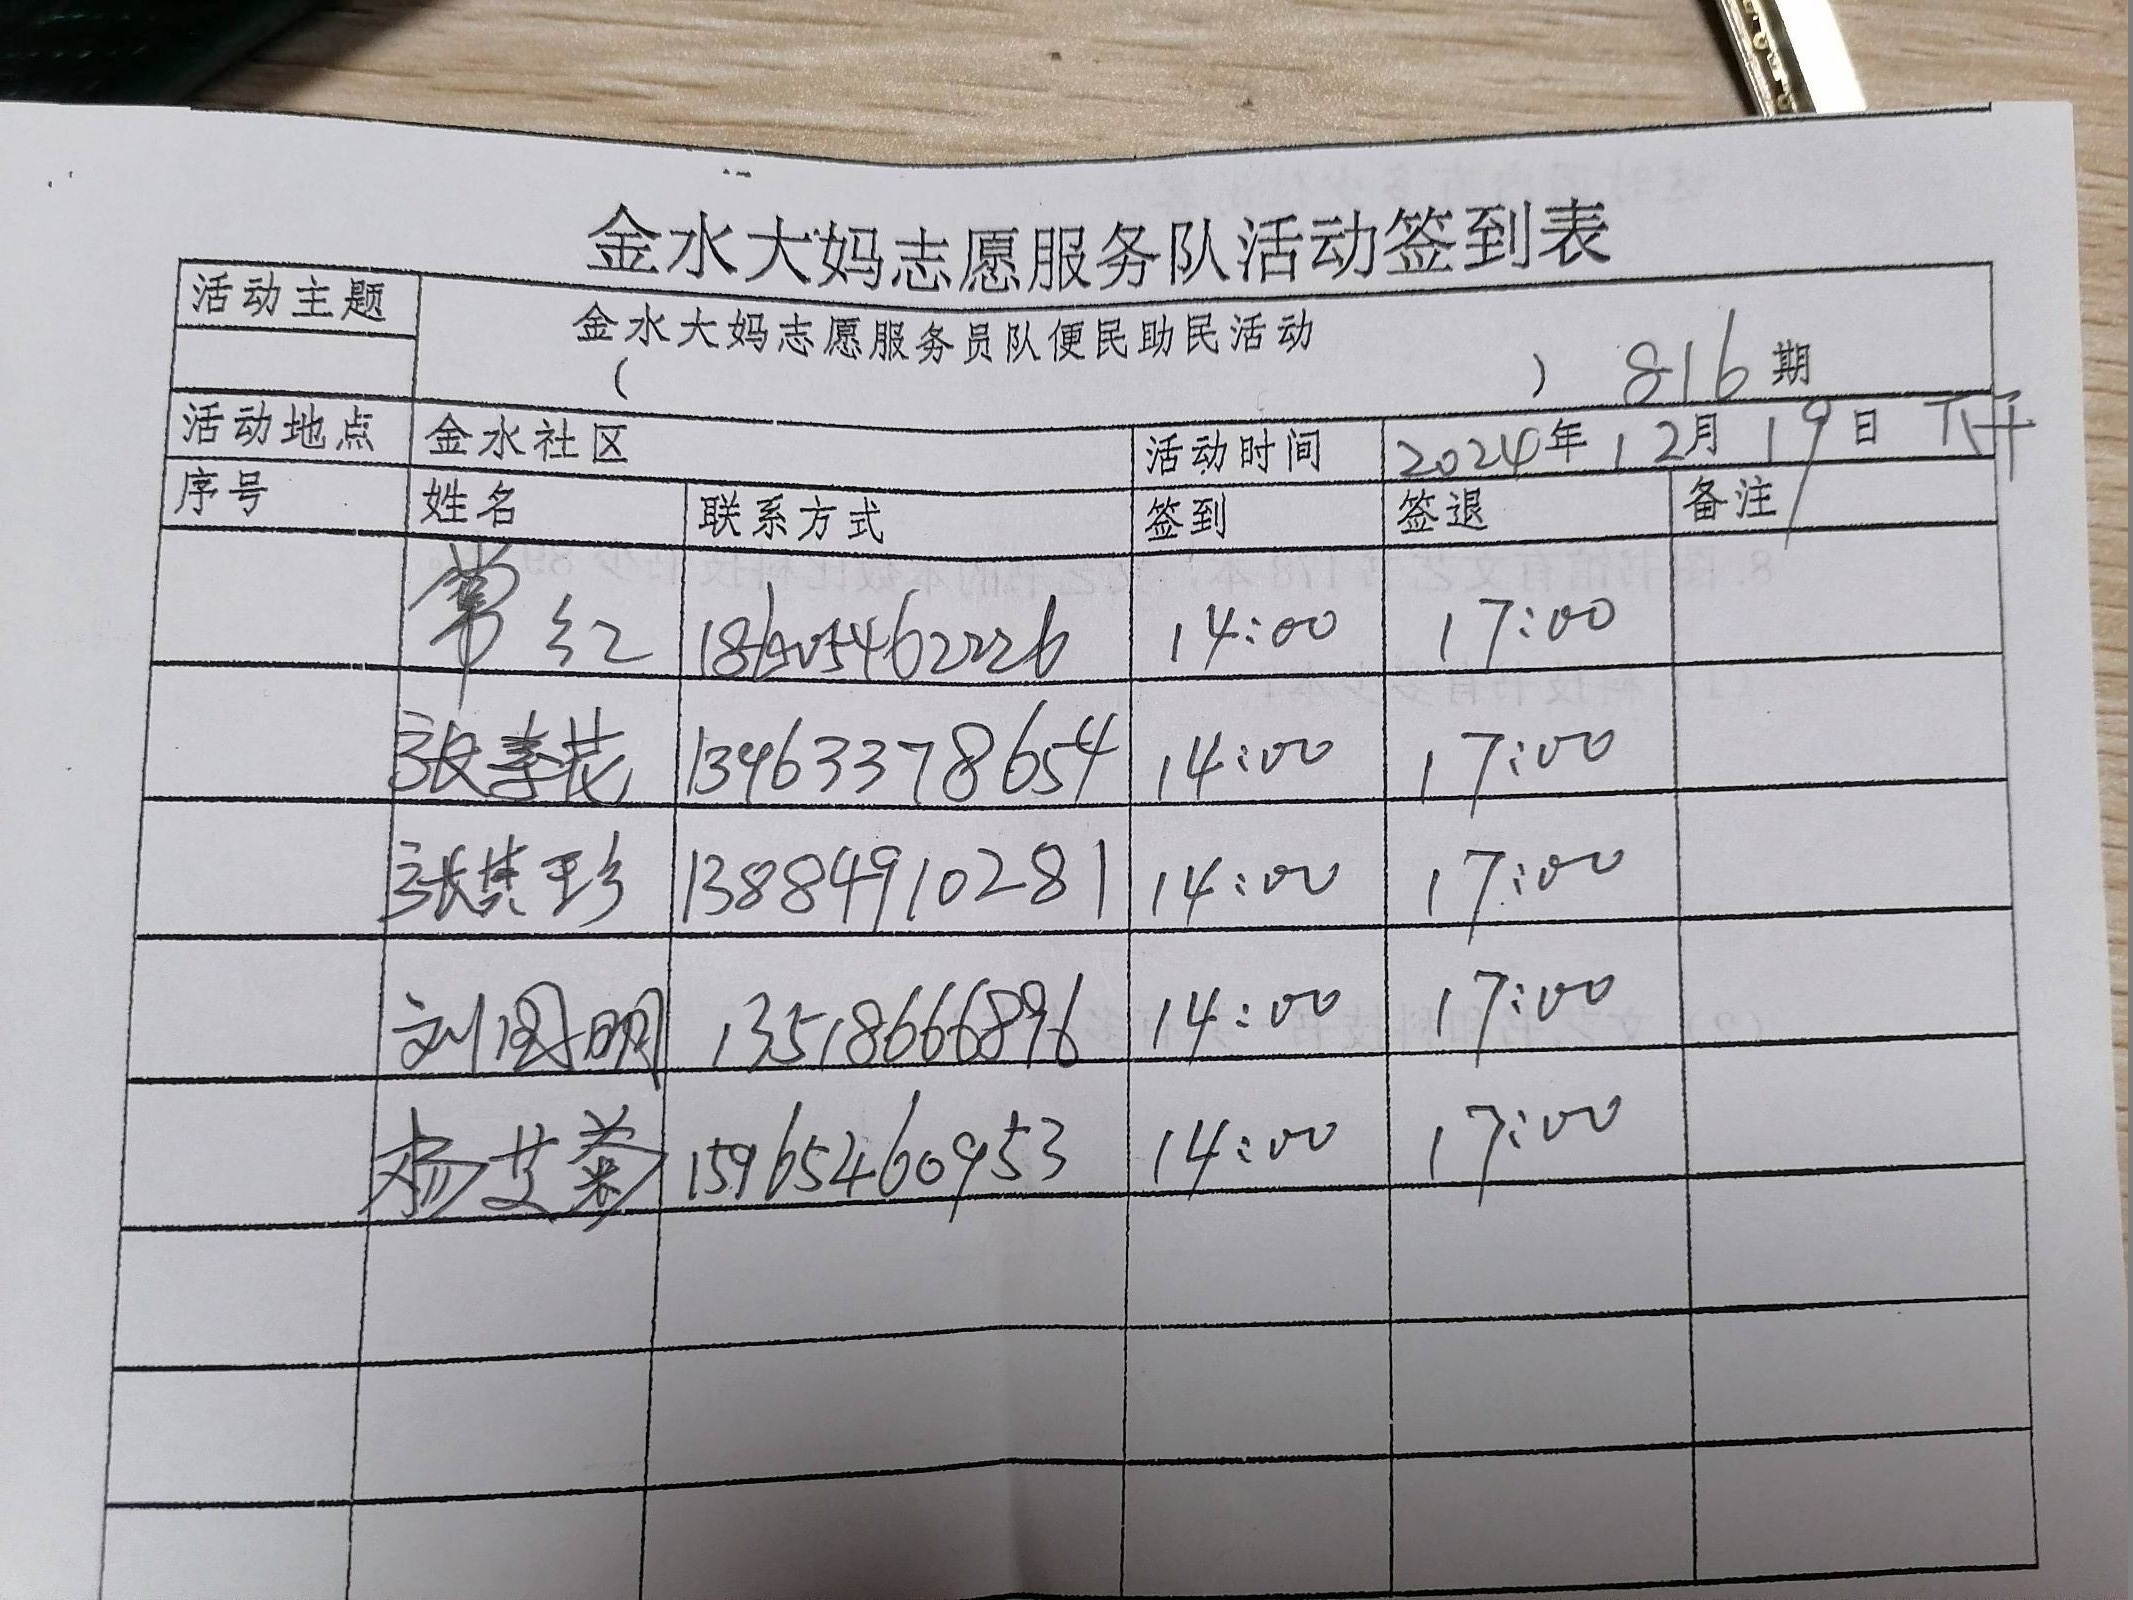 金水大妈志愿服务队活动签到表
活动主题 金水大妈志愿服务员队便民助民活动
( ) 816期
活动地点 金水社区 活动时间 2024年12月19日 下午
序号 姓名 联系方式 签到 签退 备注
常红 14:00 17:00
张春花 13963378654 14:00 17:00
张其珍 13884910281 14:00 17:00
刘国明 13518666896 14:00 17:00
杨艾菊 15965460953 14:00 17:00